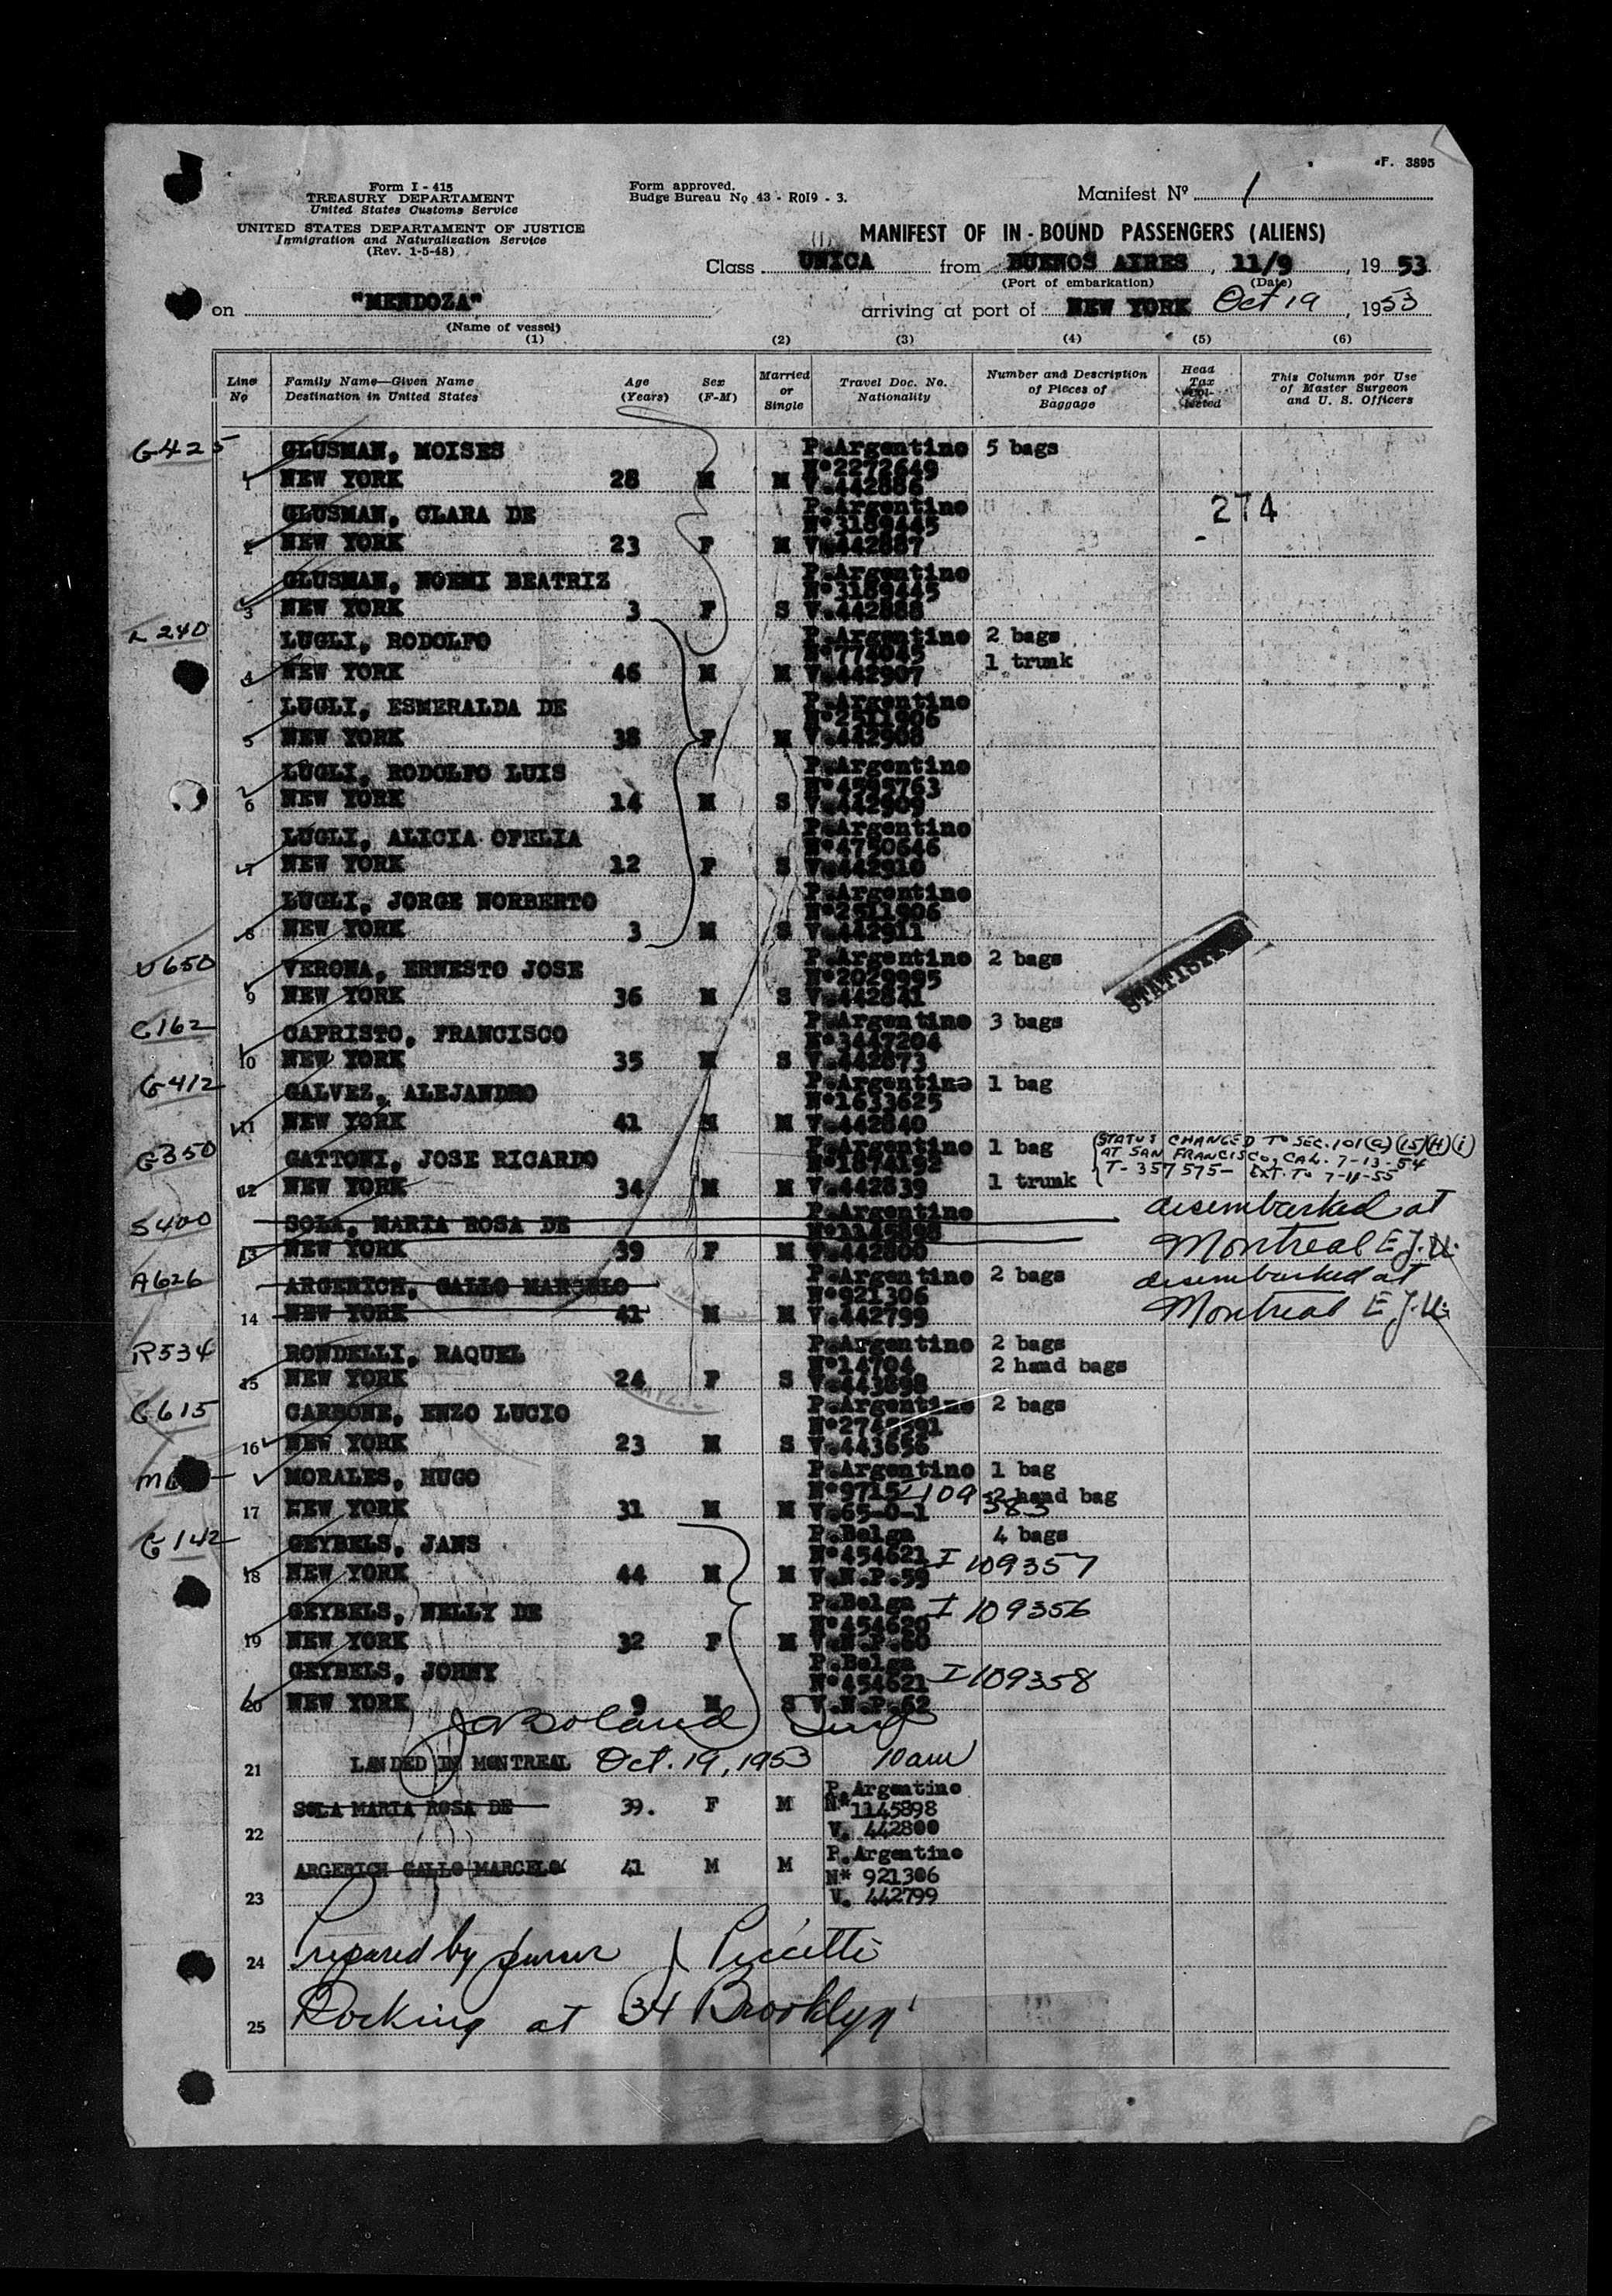 F. 3895
Form I - 415
TREASURY DEPARTAMENT
United States Customs Service
UNITED STATES DEPARTAMENT OF JUSTICE
Inmigration and Naturalization Service
(Rev. 1-5-48)
Form approved.
Budge Bureau No 43 - ROI9 - 3.
Manifest Nº 1
MANIFEST OF IN - BOUND PASSENGERS (ALIENS)
Class UNICA from BUENOS AIRES, 11/9, 1953
(Port of embarkation) (Date)
on "MENDOZA" arriving at port of NEW YORK Oct 19, 1953
(Name of vessel)
(1) (2) (3) (4) (5) (6)
Line No
Family Name—Given Name
Destination in United States
Age (Years)
Sex (F-M)
Married or Single
Travel Doc. No. Nationality
Number and Description of Pieces of Baggage
Head Tax Col- lected
This Column por Use of Master Surgeon and U. S. Officers
G425 GLUSMAN, MOISES P.Argentino 5 bags
Nº2272649
1 NEW YORK 28 M M V.442886
GLUSMAN, CLARA DE P.Argentino 274
Nº3189445
2 NEW YORK 23 F M V.442887
GLUSMAN, NOEMI BEATRIZ P.Argentino
Nº3189445
3 NEW YORK 3 F S V.442888
L240 LUGLI, RODOLFO P.Argentino 2 bags
Nº774045 1 trunk
4 NEW YORK 46 M M V.442907
LUGLI, ESMERALDA DE P.Argentino
Nº2511906
5 NEW YORK 38 F M V.442908
LUGLI, RODOLFO LUIS P.Argentino
Nº4595763
6 NEW YORK 14 M S V.442909
LUGLI, ALICIA OFELIA P.Argentino
Nº4750646
7 NEW YORK 12 F S V.442910
LUGLI, JORGE NORBERTO P.Argentino
Nº2511906
8 NEW YORK 3 M S V.442911
V650 VERONA, ERNESTO JOSE P.Argentino 2 bags
Nº2029995
9 NEW YORK 36 M S V.442841
C162 CAPRISTO, FRANCISCO P.Argentino 3 bags
Nº3447204
10 NEW YORK 35 M S V.442873
G412 GALVEZ, ALEJANDRO P.Argentino 1 bag
Nº1633625
11 NEW YORK 41 M M V.442840
G350 GATTONI, JOSE RICARDO P.Argentino 1 bag
STATUS CHANGED TO SEC. 101(a)(15)(H)(i)
AT SAN FRANCISCO, CAL. 7-13-54
T-357575- EXT. TO 7-11-55
Nº1674192
12 NEW YORK 34 M M V.442839 1 trunk
S400 SOLA, MARIA ROSA DE P.Argentino disembarked at
Nº1145898
13 NEW YORK 39 F M V.442800 Montreal E.J.U.
A626 ARGERICH, GALLO MARCELO P.Argentino 2 bags disembarked at
Nº921306
14 NEW YORK 41 M M V.442799 Montreal E.J.U.
R534 RONDELLI, RAQUEL P.Argentino 2 bags
Nº14704 2 hand bags
15 NEW YORK 24 F S V.443698
C615 CARBONE, ENZO LUCIO P.Argentino 2 bags
16 NEW YORK 23 M S V.443656
MORALES, HUGO P.Argentino 1 bag
Nº9715 I109383 2 hand bag
17 NEW YORK 31 M M V.65-0-1
G142 GEYBELS, JANS P.Belga 4 bags
Nº454621 I 109357
18 NEW YORK 44 M M V.N.P.59
GEYBELS, NELLY DE P.Belga I 109356
Nº454620
19 NEW YORK 32 F M V.N.P.60
GEYBELS, JOHNY P.Belga
Nº454621 I109358
20 NEW YORK 9 M S V.N.P.62
JaBoland
21 LANDED IN MONTREAL Oct. 19, 1953 10am
SOLA MARIA ROSA DE 39. F M P.Argentino
N* 1145898
22 V. 442800
ARGERICH GALLO MARCELO 41 M M P.Argentino
N* 921306
23 V. 442799
24 Prepared by purser J Piccetti
25 Docking at 34 Brooklyn